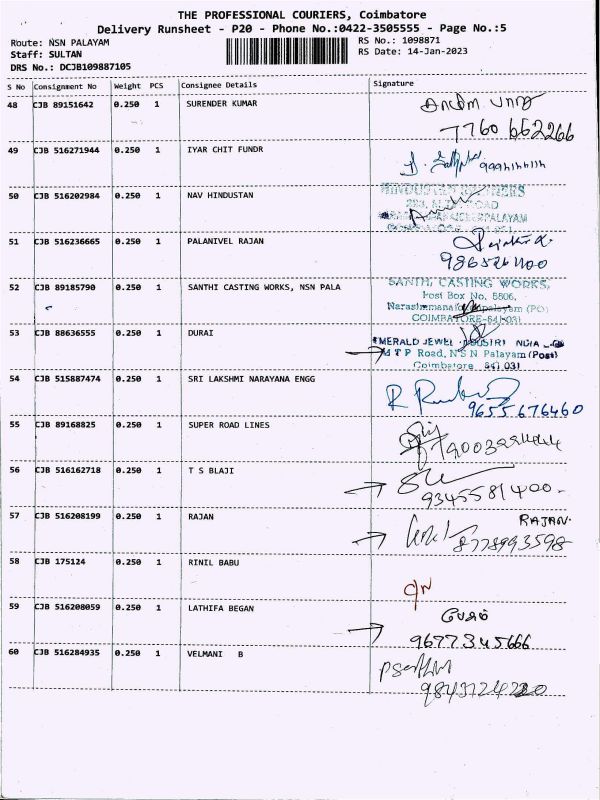 THE PROFESSIONAL COURIERS, Coimbatore
Delivery Runsheet - P20 - Phone No.:0422-3505555 - Page No.:5
Route: NSN PALAYAM RS No.: 1098871
Staff: SULTAN RS Date: 14-Jan-2023
DRS No.: DCJB109887105
S No Consignment No Weight PCS Consignee Details Signature
48 CJB 89151642 0.250 1 SURENDER KUMAR
7760 662266
49 CJB 516271944 0.250 1 IYAR CHIT FUNDR
50 CJB 516202984 0.250 1 NAV HINDUSTAN
51 CJB 516236665 0.250 1 PALANIVEL RAJAN
52 CJB 89185790 0.250 1 SANTHI CASTING WORKS, NSN PALA SANTHI CASTING WORKS,
Post Box No. 5506,
(PO)
COIMBATORE-641 031
53 CJB 88636555 1 DURAI EMERALD JEWEL
M T P Road, N S N Palayam (Post)
Coimbatore 641 031
54 CJB 515887474 0.250 1 SRI LAKSHMI NARAYANA ENGG
9655676460
55 CJB 89168825 0.250 1 SUPER ROAD LINES
56 CJB 516162718 0.250 1 T S BLAJI
9345581400
57 CJB 516208199 0.250 1 RAJAN RAJAN
8778993598
58 CJB 175124 0.250 1 RINIL BABU
C/N
59 CJB 516208059 0.250 1 LATHIFA BEGAN
9677345666
60 CJB 516284935 0.250 1 VELMANI B